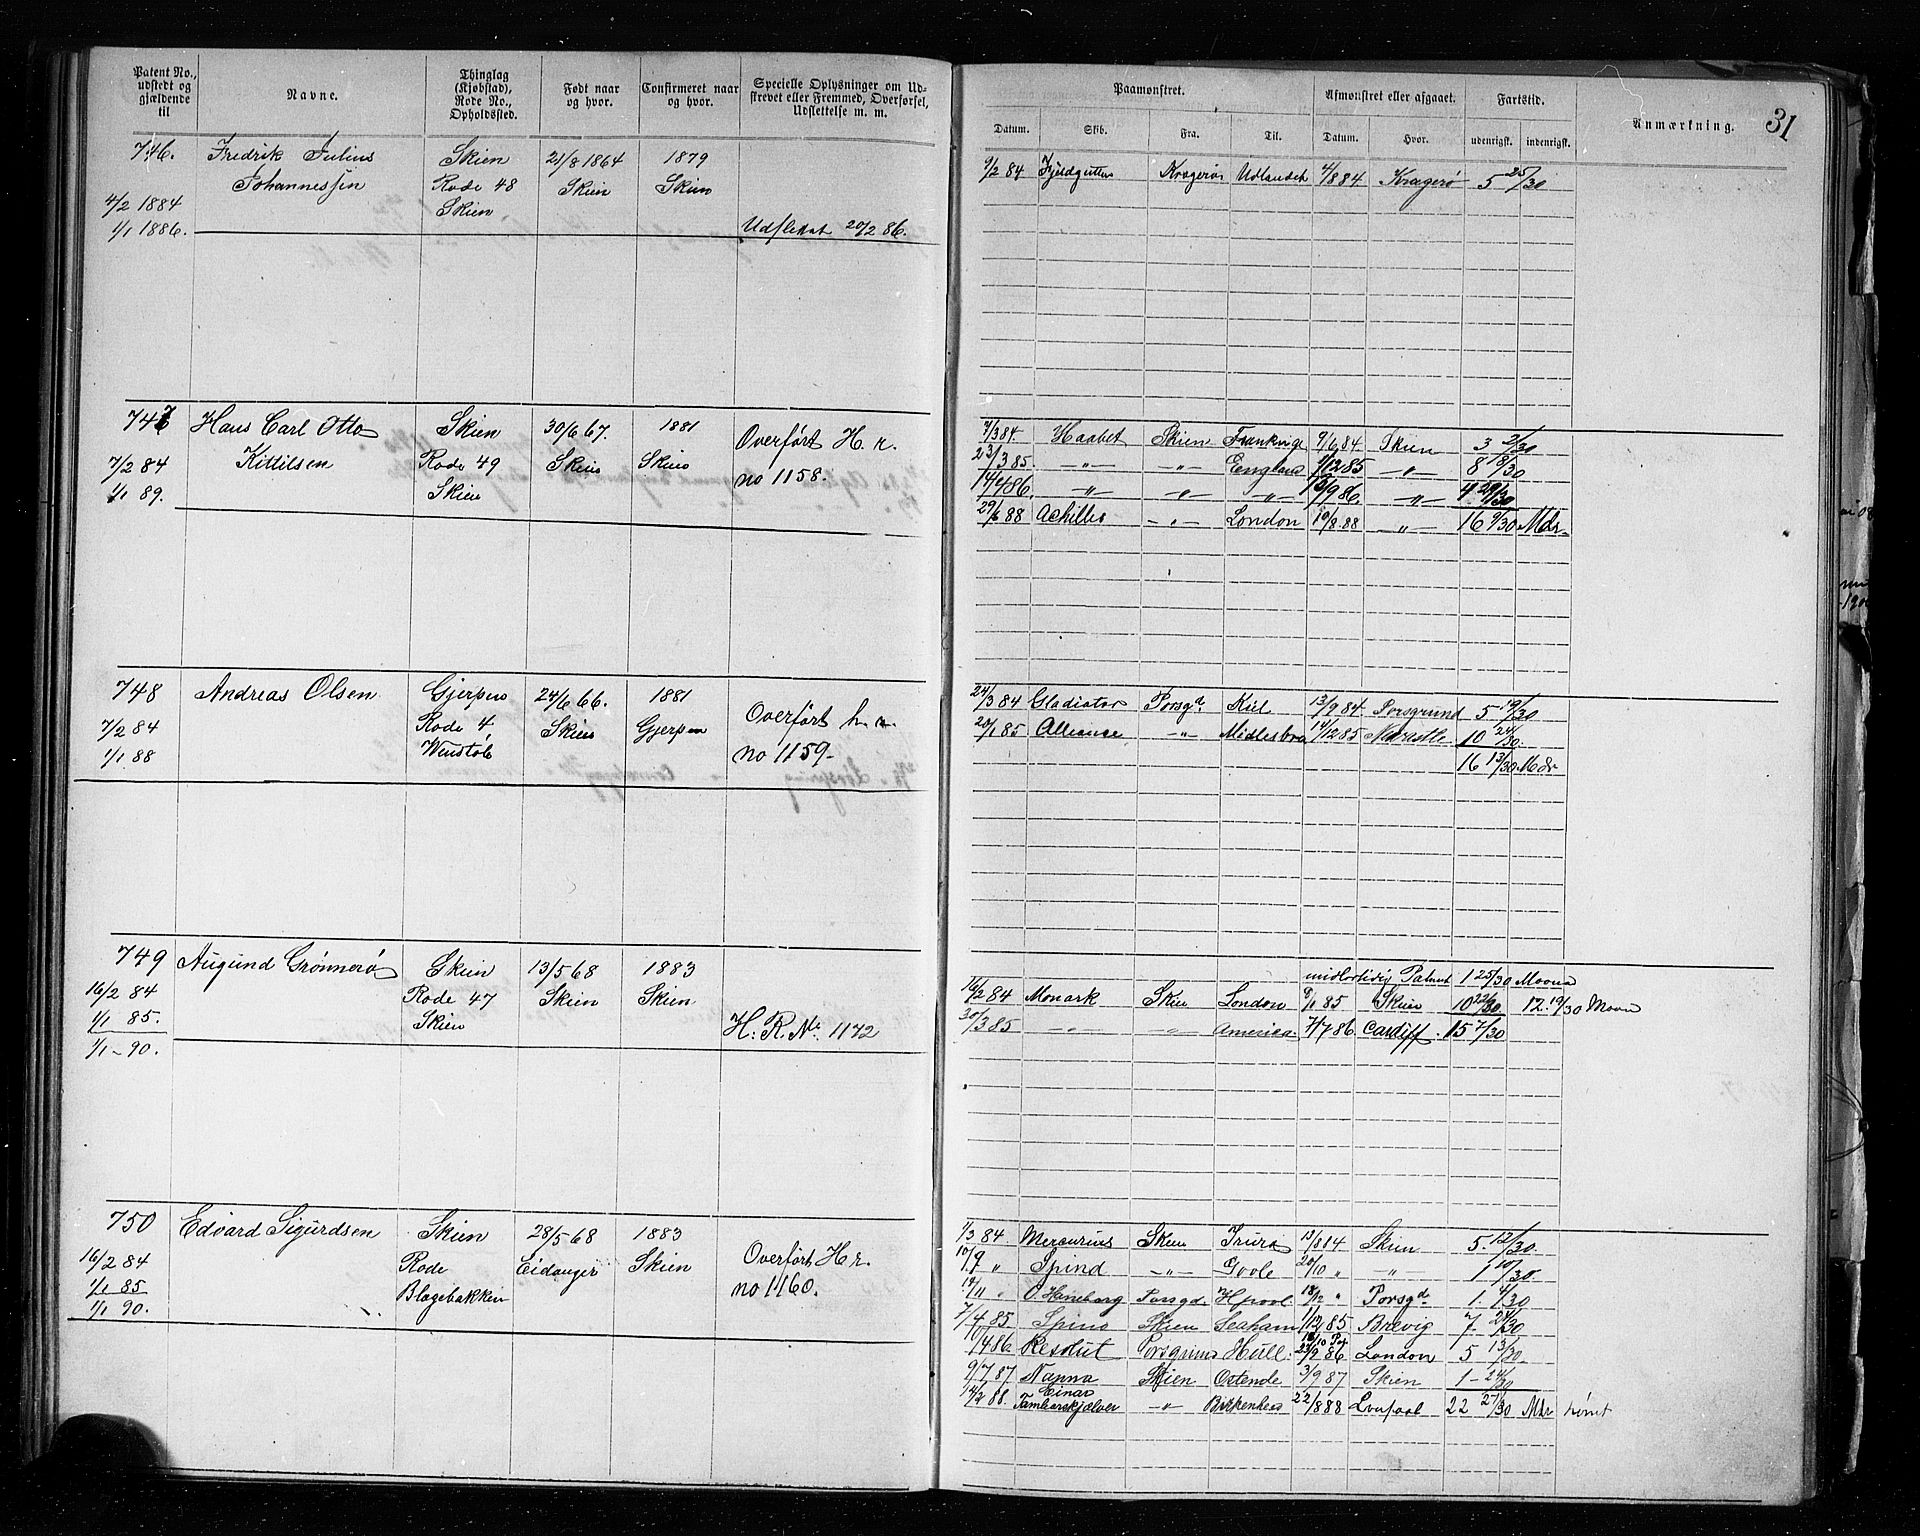 Patent No., udstedt og gjældende til
Navne.
Thinglag (Kjøbstad), Rode No., Opholdssted.
Født naar og hvor.
Confirmeret naar og hvor.
Specielle Oplysninger om Udskrevet eller Fremmed, Overførsel, Udslettelse m. m.
Paamønstret.
Afmønstret eller afgaaet.
Fartstid.
Anmærkning.
31
Datum.
Skib.
Fra.
Til.
Datum.
Hvor.
udenrigsk.
indenrigsk.
746. Fredrik Julius Skien 21/8 1864 1879
Johannessen Rode 48 Skien Skien
4/2 1884 Skien
1/1 1886. Udslettet 20/2 86.
9/2 84 Kragerø Udlandet 4/8 84 Kragerø 5 25/30
747 Hans Carl Otto Skien 30/6 67. 1881 Overført H. r.
7/2 84 Kittilsen Rode 49 Skien Skien no 1158.
1/1 89. Skien
7/3 84. Haabet Skien 9/6 84 Skien 3 2/30
23/3 85. —„— —„— England 1/12 85 —„— 8
14/4 86. —„— —„— —„— —„— 4 29/30
88 Achilles —„— London 10/8 88 —„— 16 9/30 Mdr
748 Andreas Olsen Gjerpen 24/6 66. 1881 Overført h. r.
7/2 84 Rode 4 Skien Gjerpen no 1159-
1/1 88
24/3 84 Gladiator Porsgd. Kiel 13/9 84. Porsgrund 5 19/30
20/1 85 Alliance —„— 14/12 85 10 24/30.
16 13/30 Mdr
749 Augund Grønnerø Skien 13/5 68 1883
16/2 84 Rode 47 Skien Skien
1/1 85. Skien H: R. No. 1172
1/1-90.
midlertidig Patent 1 25/30 Maana
16/2 84 Monark Skien London 9/1 85 Skien 10 22/30 12. 19/30 Maan
30/3 85 —„— —„— America. 7/7 86. Cardiff. 15 7/30
750 Edvard Sigurdsen Skien 28/5 68 1883 Overført H r.
16/2 84 Rode Eidanger Skien no 1160.
1/1 85 Blegebakken
1/1 90.
1/3 84 Mercurius Skien 13/8 84 Skien 5. 12/30
10/9 „ Spind —„— Goole 20/10 „ —„— 1 10/30
14/11 „ Porsgd. Hpool 18/12 „ Porsgd. 1. 4/30
7/4 85 Spind Skien Seaham 1/12 85 Brevig 7. 24/30
86 Resolut Porsgrund Hull. 86 London 5 13/30
9/7 87 Nanna Skien Ostende 3/9 87 Skien 1- 24/30
14/2 88. Einar Tambarskjælver —„— Birkenhead 22/8 88 22 27/30 Mdr